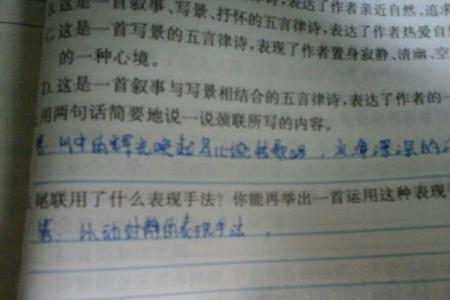 B.这是一首叙事、写景、抒怀的五言律诗,表达了作者亲近自然、追求
C.这是一首写景的五言律诗,表现了作者置身寂静、清幽、空
的一种心境。
D.这是一首叙事与写景相结合的五言律诗,表达了作者的一
用两句话简要地说一说颈联所写的内容。
答:山中的 光
尾联用了什么表现手法?你能再举出一首运用这种表现手
答: 以动衬静的表现手法,